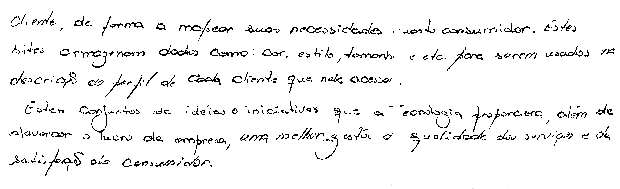 cliente, de forma a mapear suas necessidades consumidor. Estes
sites armazenam dados como: cor, estilo, tamanho e etc. para serem usados na
descrição do perfil de cada cliente que nele acessa.
Estes conjuntos de ideias e iniciativas que a Tecnologia proporciona, além de
alavancar o lucro da empresa, uma melhor gestão e qualidade dos serviços e da
satisfação do consumidor.